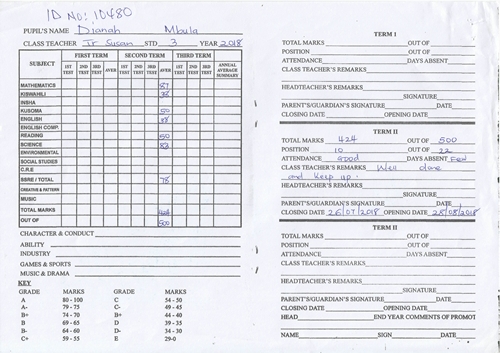 ID No: 10480
PUPIL'S NAME Dianah Mbula
CLASS TEACHER Tr Susan STD 3 YEAR 2018
SUBJECT FIRST TERM SECOND TERM THIRD TERM ANNUAL AVERAGE SUMMARY
1ST TEST 2ND TEST 3RD TEST AVER 1ST TEST 2ND TEST 3RD TEST AVER 1ST TEST 2ND TEST 3RD TEST AVER
MATHEMATICS
KISWAHILI
INSHA
KUSOMA 50
ENGLISH
ENGLISH COMP.
READING 50
SCIENCE 82
ENVIRONMENTAL
SOCIAL STUDIES
C.R.E
SSRE / TOTAL 78
CREATIVE & PATTERN
MUSIC
TOTAL MARKS 424
OUT OF 500
CHARACTER & CONDUCT
ABILITY
INDUSTRY
GAMES & SPORTS
MUSIC & DRAMA
KEY
GRADE MARKS GRADE MARKS
A 80 - 100 C 54 - 50
A- 79 - 75 C- 49 - 45
B+ 74 - 70 B+ 44 - 40
B 69 - 65 D 39 - 35
B- 64 - 60 D- 34 - 30
C+ 59 - 55 E 29-0
TERM I
TOTAL MARKS OUT OF
POSITION OUT OF
ATTENDANCE DAYS ABSENT
CLASS TEACHER'S REMARKS
HEADTEACHER'S REMARKS
SIGNATURE
PARENT'S/GUARDIAN'S SIGNATURE DATE
CLOSING DATE OPENING DATE
TERM II
TOTAL MARKS 424 OUT OF 500
POSITION 10 OUT OF 22
ATTENDANCE Good DAYS ABSENT Few
CLASS TEACHER'S REMARKS Well done
and keep up.
HEADTEACHER'S REMARKS
SIGNATURE
PARENT'S/GUARDIAN'S SIGNATURE DATE
CLOSING DATE 26/07/2018 OPENING DATE 28/08/2018
TERM II
TOTAL MARKS OUT OF
POSITION OUT OF
ATTENDANCE DAYS ABSENT
CLASS TEACHER'S REMARKS
HEADTEACHER'S REMARKS
SIGNATURE
PARENT'S/GUARDIAN'S SIGNATURE DATE
CLOSING DATE OPENING DATE
HEAD END YEAR COMMENTS OF PROMOT
NAME SIGN DATE